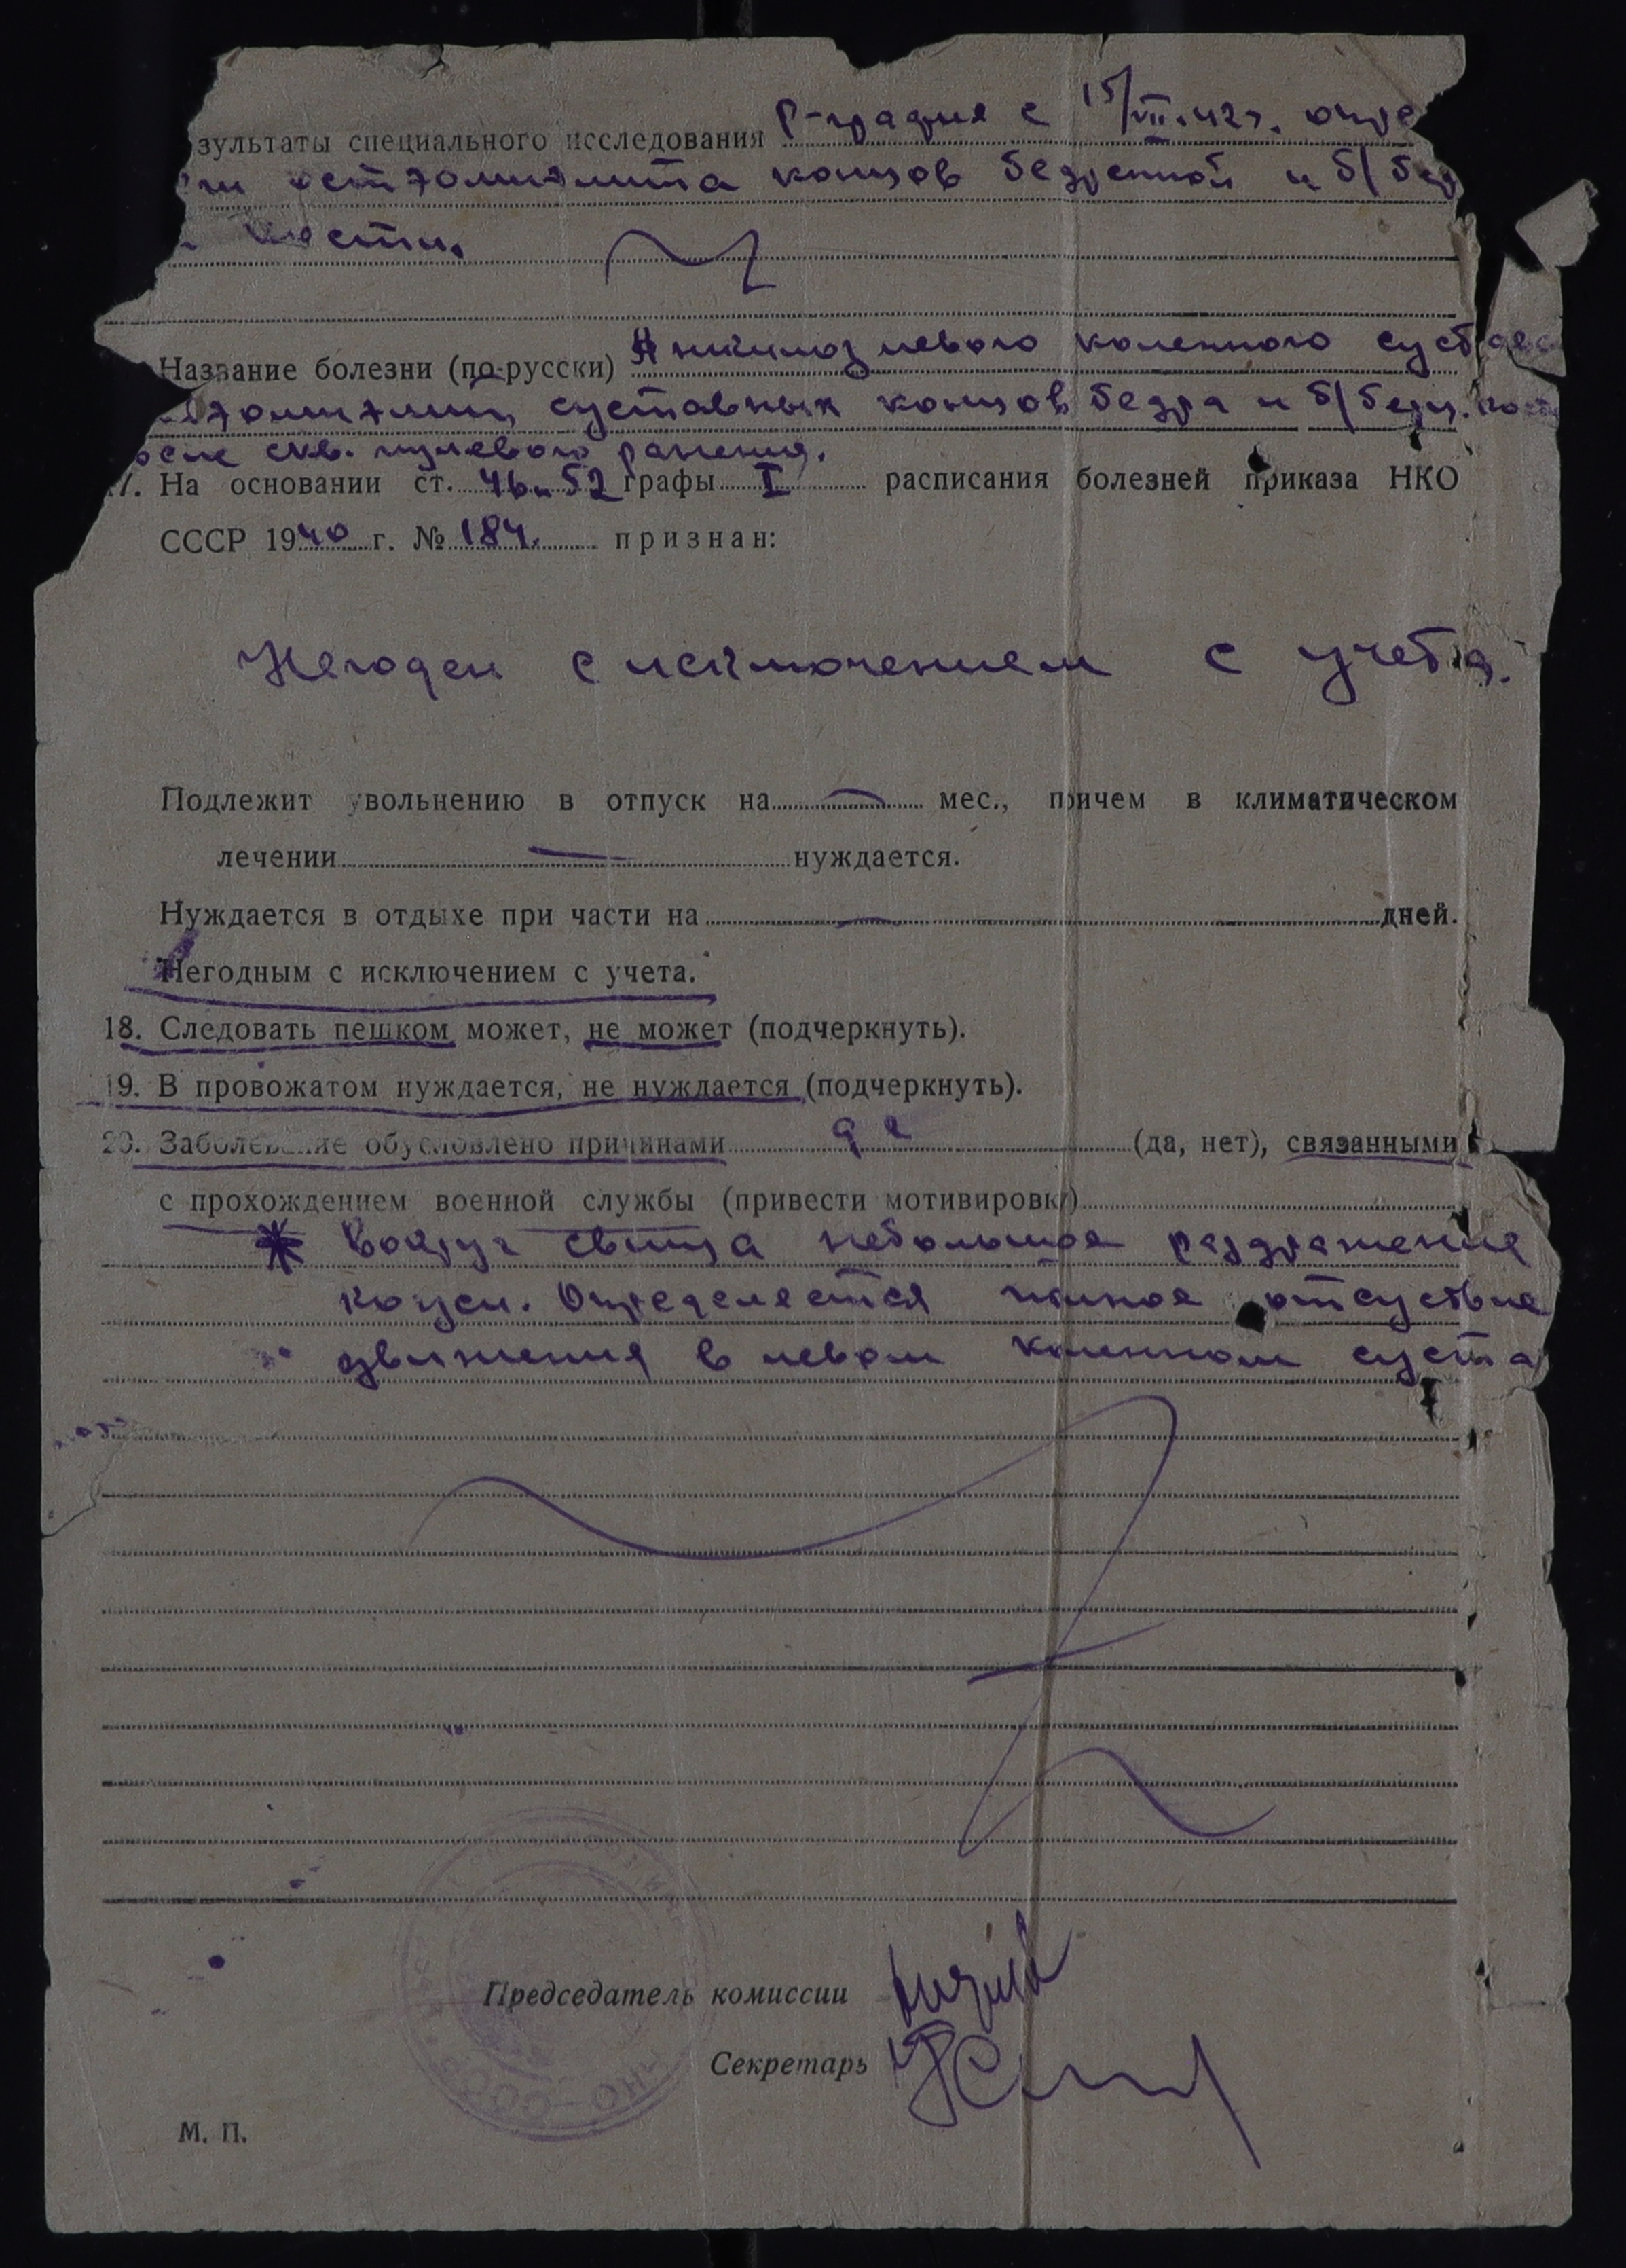 зультаты специального исследования Р-графия с 15/VII.42г.
остэомиэлита концов бедренной и б/бер
кости.
Название болезни (по-русски) Анкилоз левого коленного сустава
суставных концов бедра и б/берц. кости
после скв. пулевого ранения.
17. На основании ст. 46 и 52 графы I расписания болезней приказа НКО
СССР 1940 г. № 184. признан:
Негоден с исключением с учета.
Подлежит увольнению в отпуск на — мес., причем в климатическом
лечении — нуждается.
Нуждается в отдыхе при части на — дней.
Негодным с исключением с учета.
18. Следовать пешком может, не может (подчеркнуть).
19. В провожатом нуждается, не нуждается (подчеркнуть).
20. Заболевание обусловлено причинами да (да, нет), связанными
с прохождением военной службы (привести мотивировку)
* Вокруг свища небольшое раздражение
кожи. Определяется полное отсутствие
движения в левом коленном суста
Председатель комиссии
Секретарь
М. П.